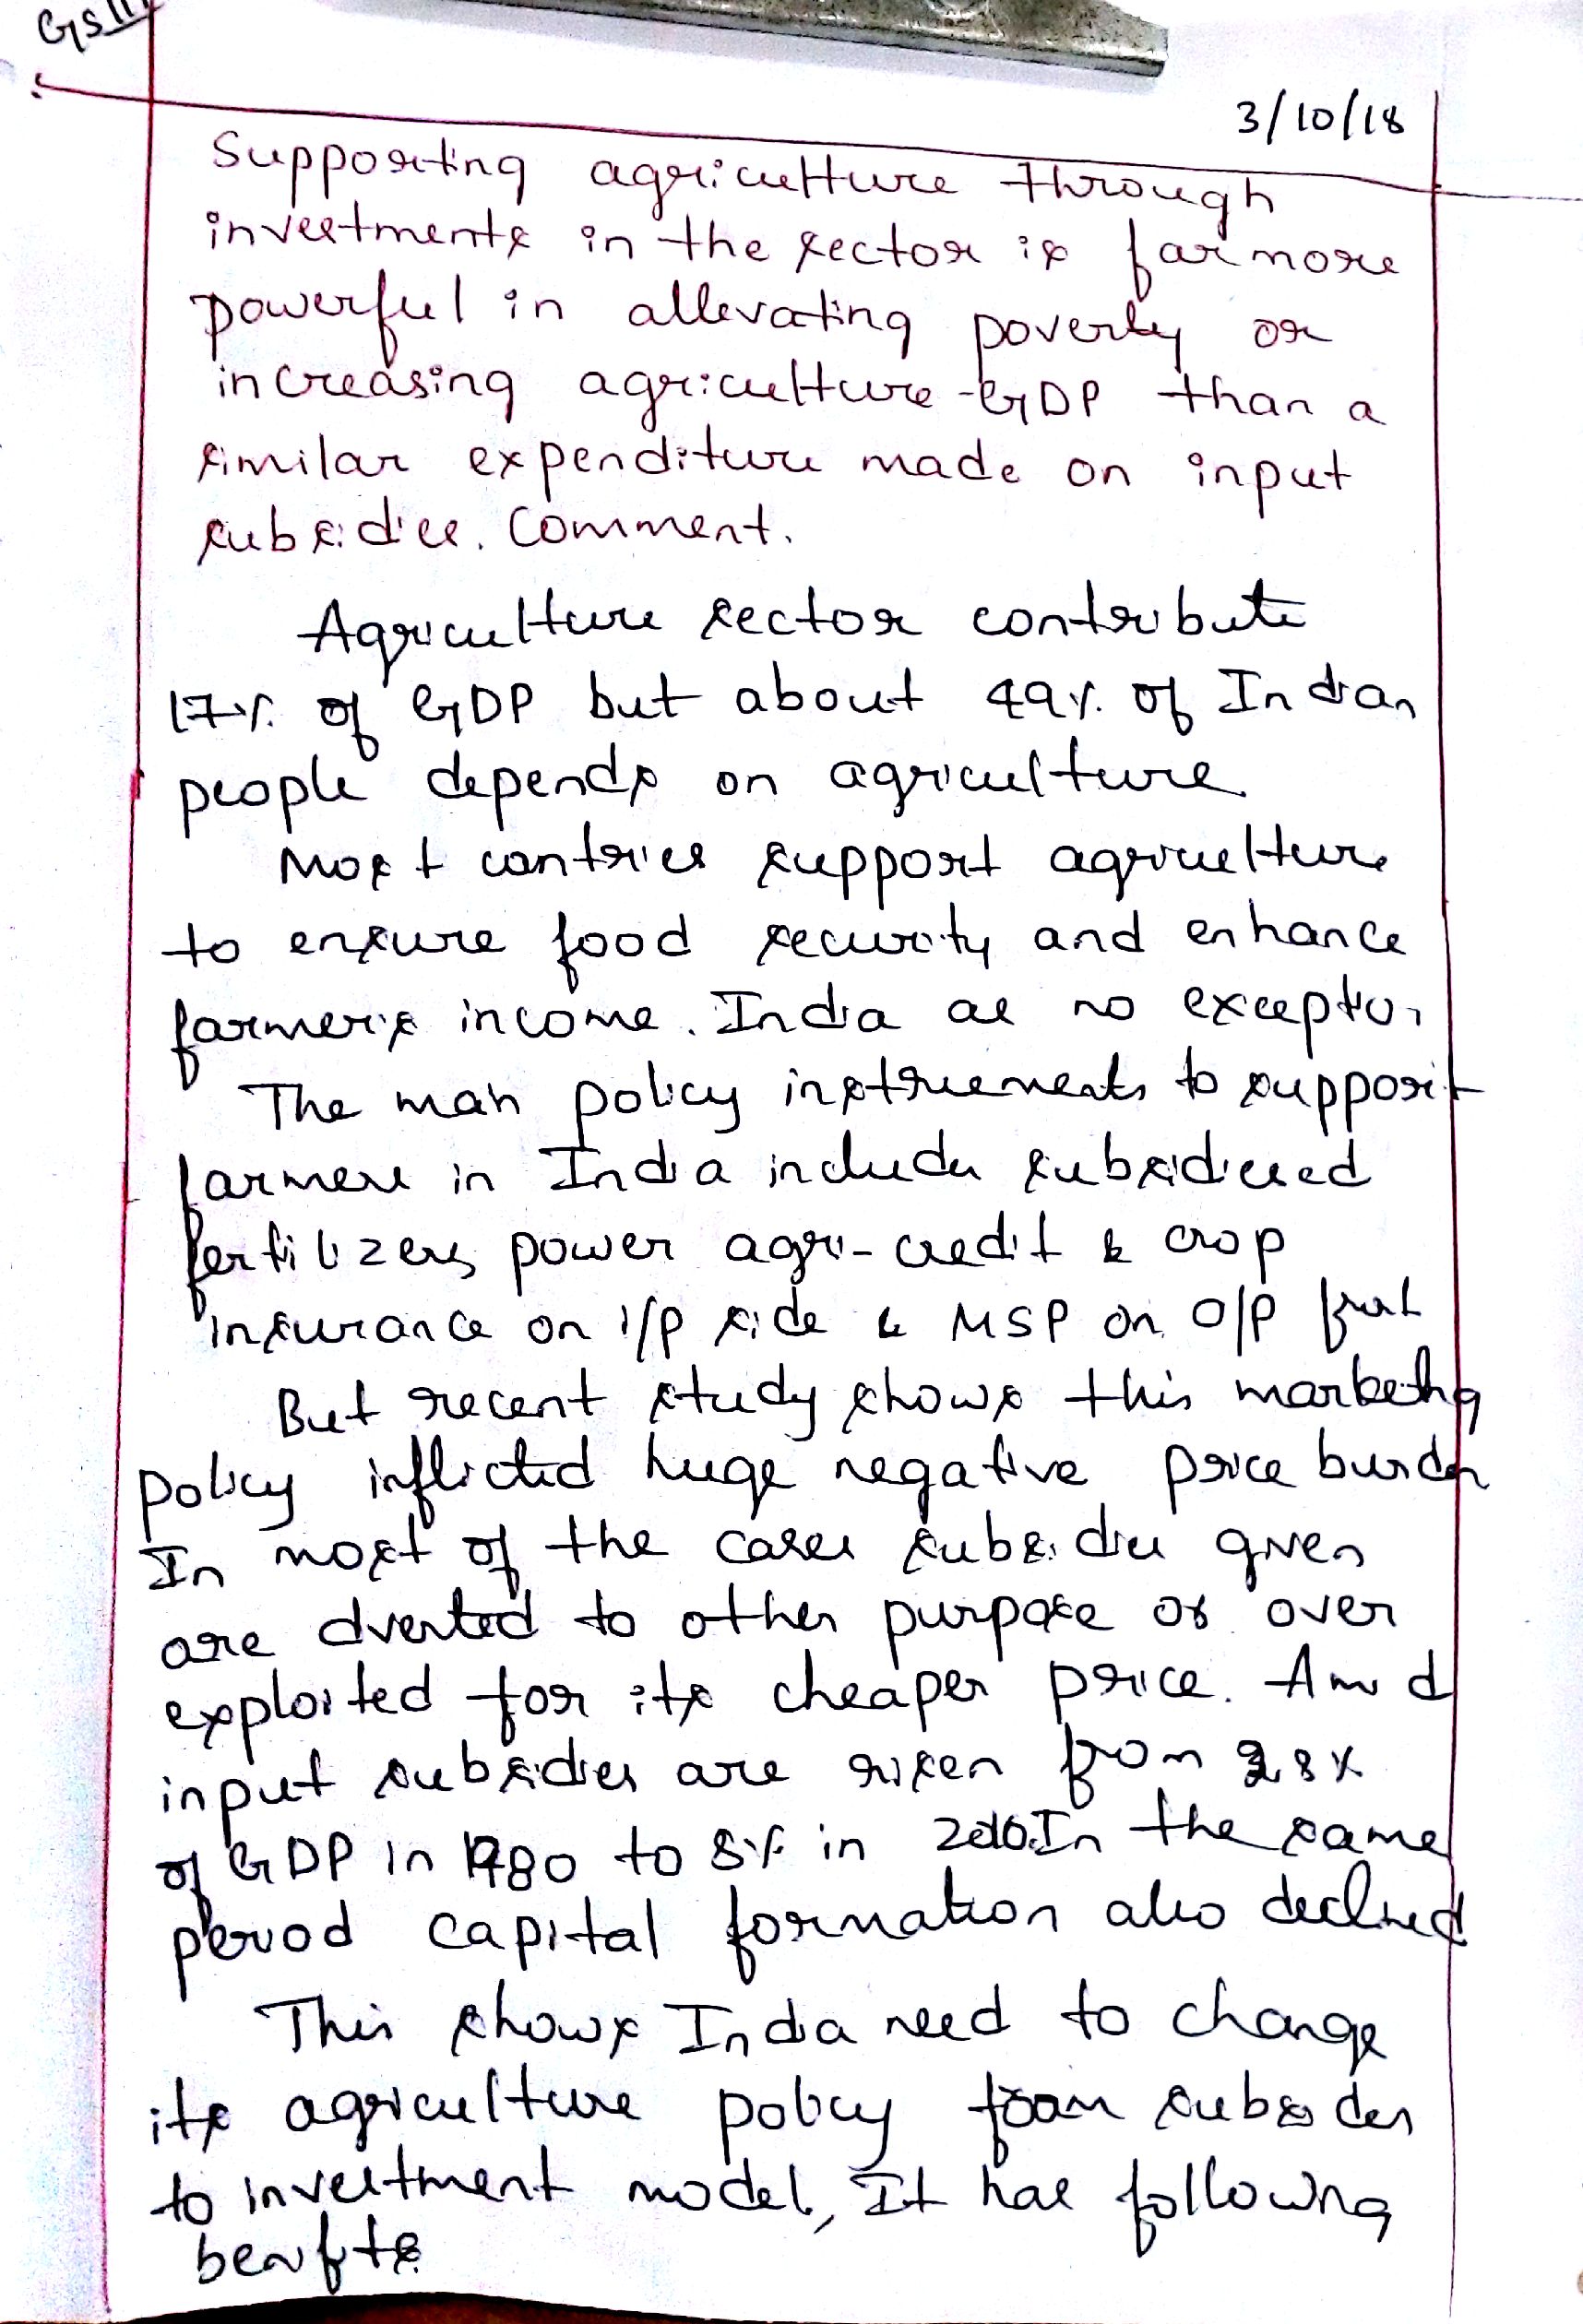 GS III
3/10/18
Supporting agriculture through
investments in the sector is far more
powerful in allevating poverty or
increasing agriculture-GDP than a
similar expenditure made on input
subsidies. Comment.
Agriculture sector contribute
17% of GDP but about 49% of Indian
people depends on agriculture
Most contries support agriculture
to ensure food security and enhance
farmer's income. India as no exception
The main policy instruements to support
farmers in India includes subsidiesed
fertilizers, power agri-credit & crop
insurance on i/p side & MSP on O/P
But recent study shows this marketing
policy inflicted huge negative price burden
In most of the cases subsidies given
are diverted to other purpose or over
exploited for its cheaper price. And
input subsidies are risen from 2.8%
of GDP in 1980 to 8% in In the same
period capital formation also declined
This shows India need to change
its agriculture policy from subsidies
to investment model, It has following
benifits